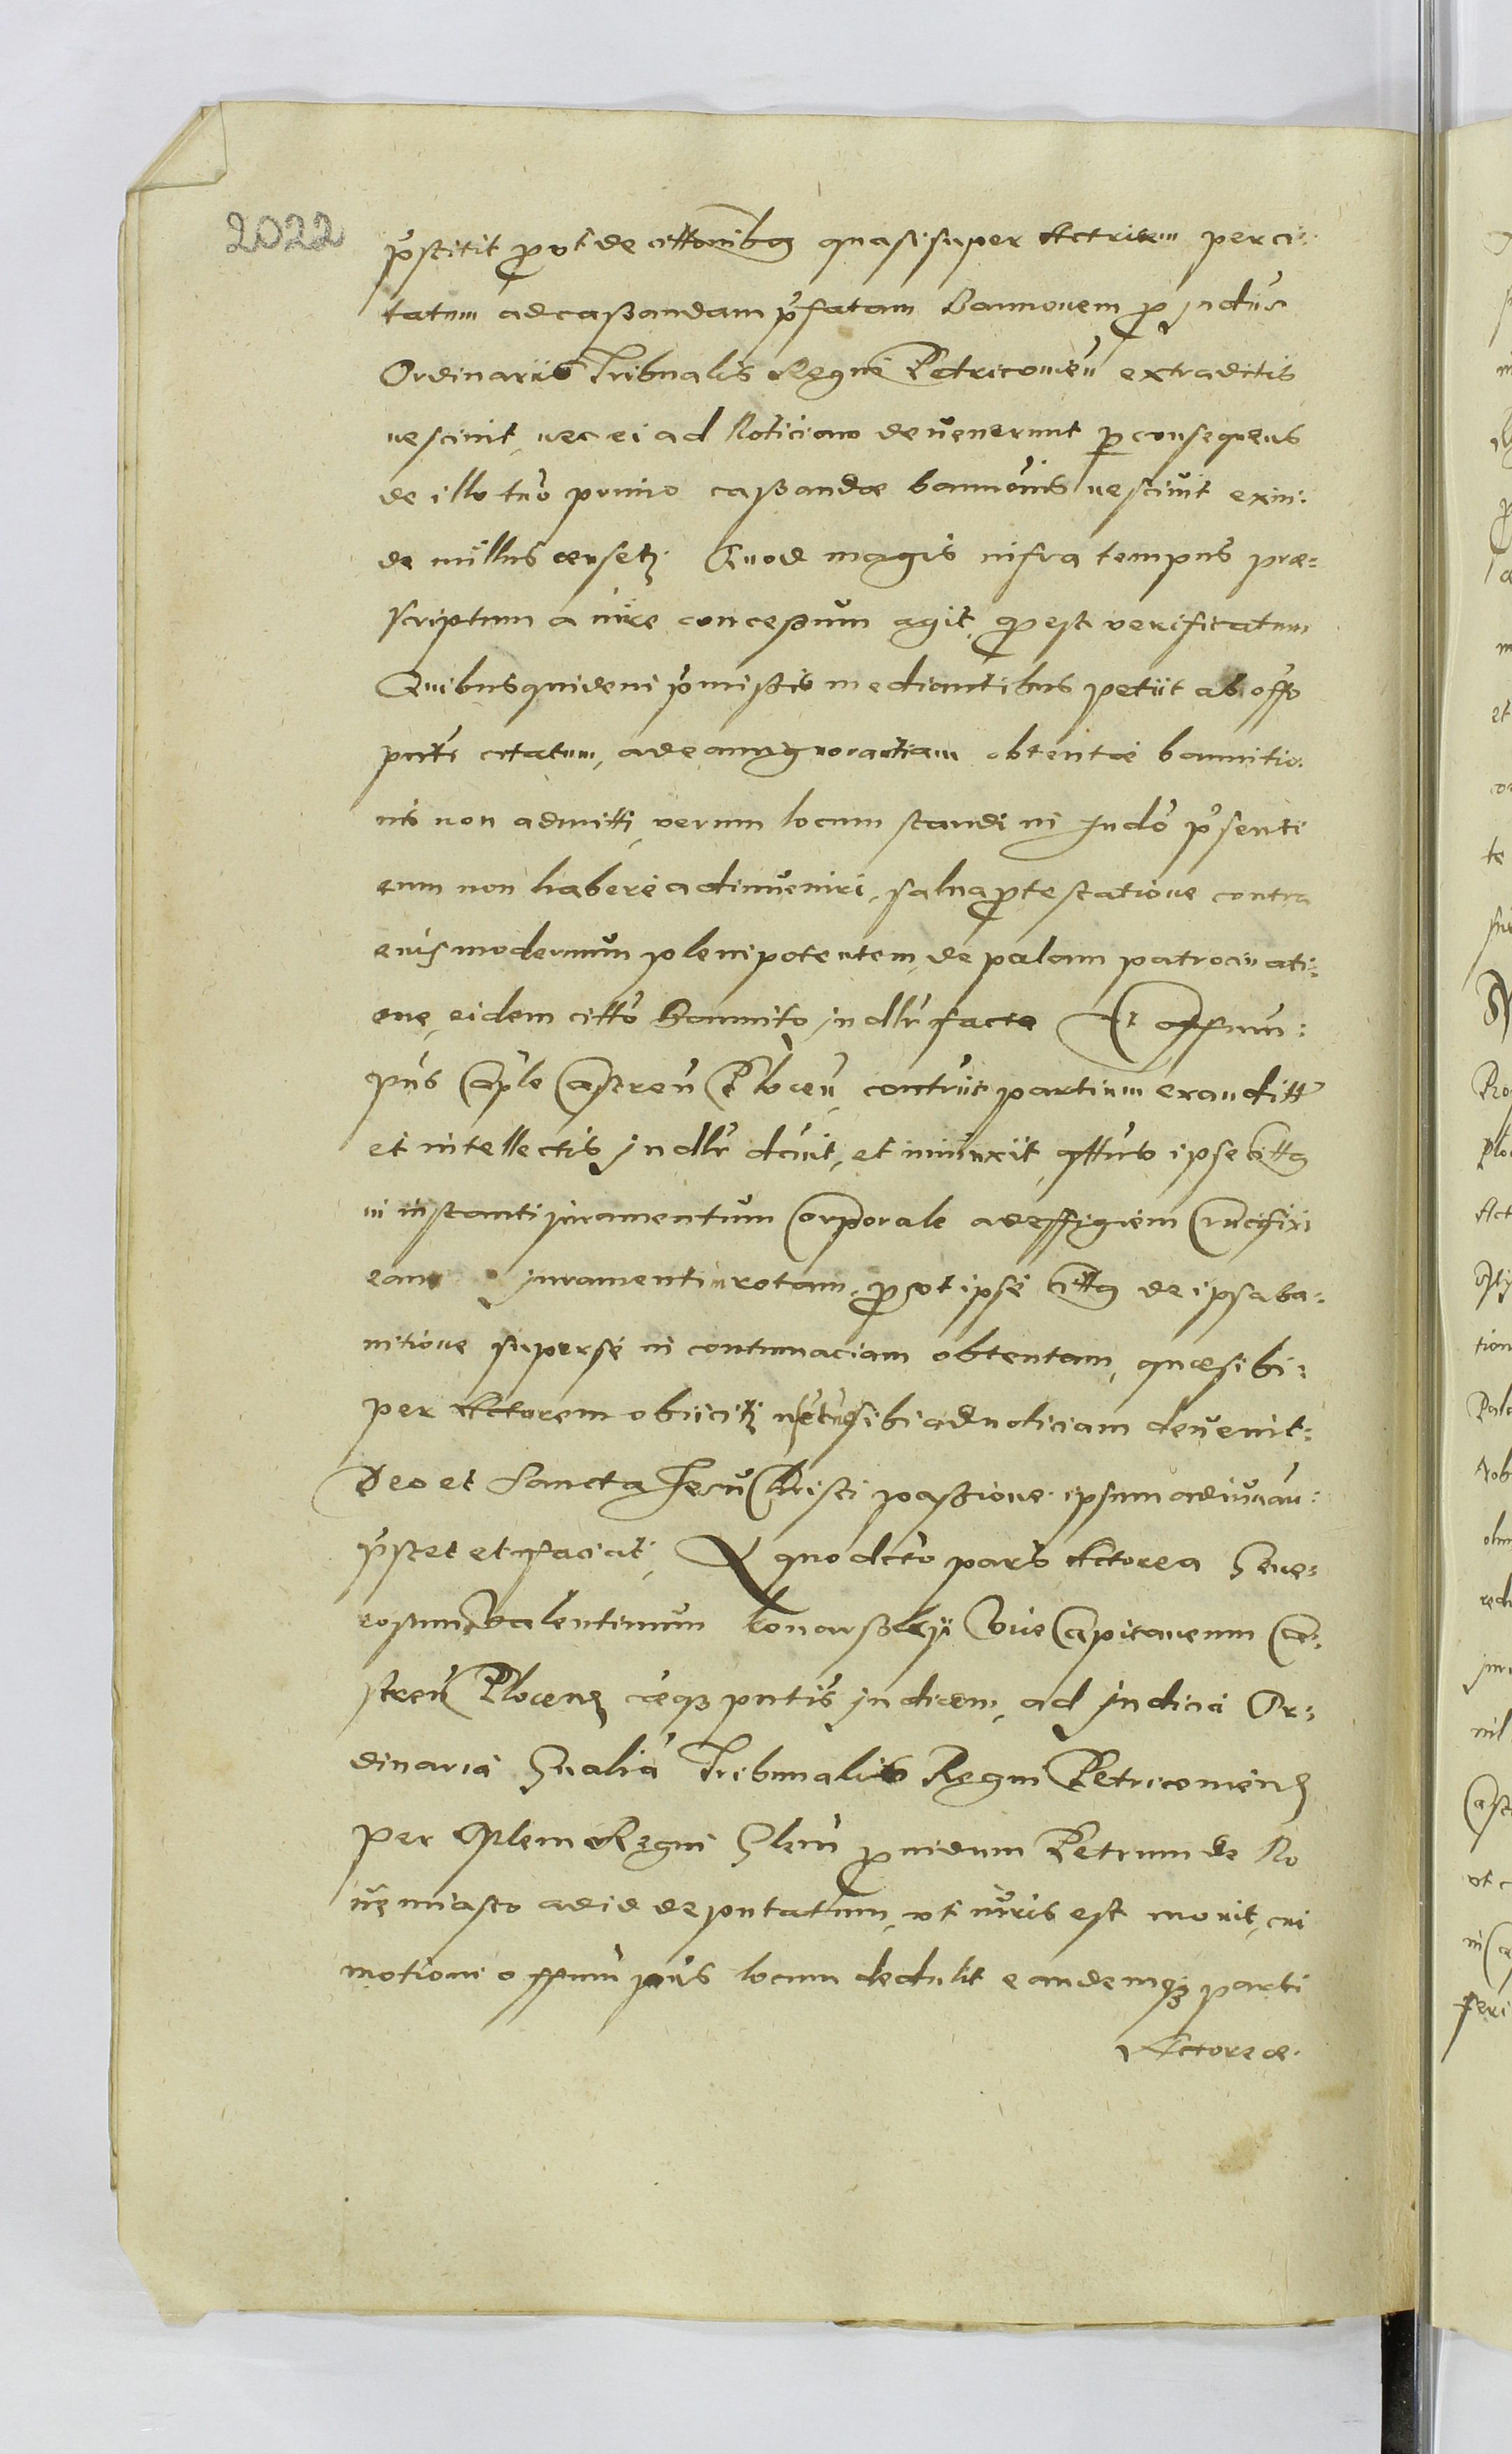 2022
pͬstitit ꝓut de cittonibꝫ quasi super Actricem per ci:
tatum ad cassandam pͬfatam Bannonem ꝓ Judiis
Ordinariis Tribnalis Regni Petricouien extraditis
nesciuit, nec ei ad Noticiam deuenerunt ꝑ consequens
de illo tno primo cassandæ bannonis nesciuit exin:
de nullus censetꝫ. Quod magis infra tempus præ:
scriptum a iure concessum agit, ꝙ est verificatum
Quibusquidem pͬmissis mediantibus petiit ab offo
pnti citatum, ad eam ignorantiam obtentæ bannitio:
nis non admitti, verum locum standi in Judo pͬsenti
eum non habere adinueniri, salua ꝓtestatione contra
eius modernum plenipotentem, de palam patrocinati:
one, eidem citto Bannito judlr facta Et offium:
pns Caple Castren Plocen, contriis partium exauditt
et intellectis judlr dcuit, et iniunxit, qttus ipse cittꝫ
in instanti juramentum Corporale ad effigiem Crucifixi
eam juramenti rotam, ꝓut ipse cittꝫ de ipsa ba:
nitione super se in contumaciam obtentam, quæ sibi:
per Actorem obiicitꝫ sibi ad noticiam deuenit:
Deo et Sancta Jesu Christi passione ipsum adiuuan:
pͬstet et faciat, A quo dcreto pars Actorea Gene:
rosum Valentinum Konarssky Vice Capitaneum Ca:
stren Plocenꝫ ceqꝫ pntis judicem, ad judicia Or:
dinaria Gnalia Tribunalis Regni Petricouienꝫ
per Mlem Regni Glem ꝓuidum Petrum de No
ue miasto ad id deputatum, vt iuris est mouit, cui
motioni offium pns locum dedulit eandemqꝫ parti
Actoreæ.